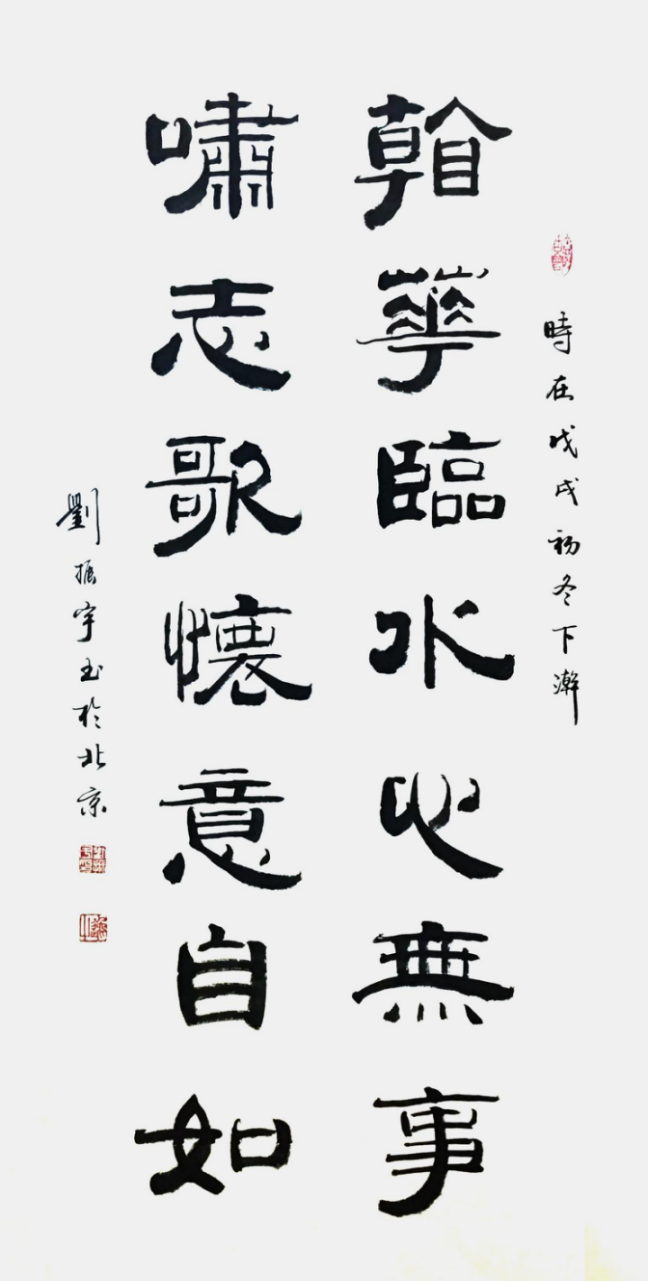 時在戊戌初冬下澣
看華臨水心無事
嘯志歌懷意自如
劉振宇書於北京